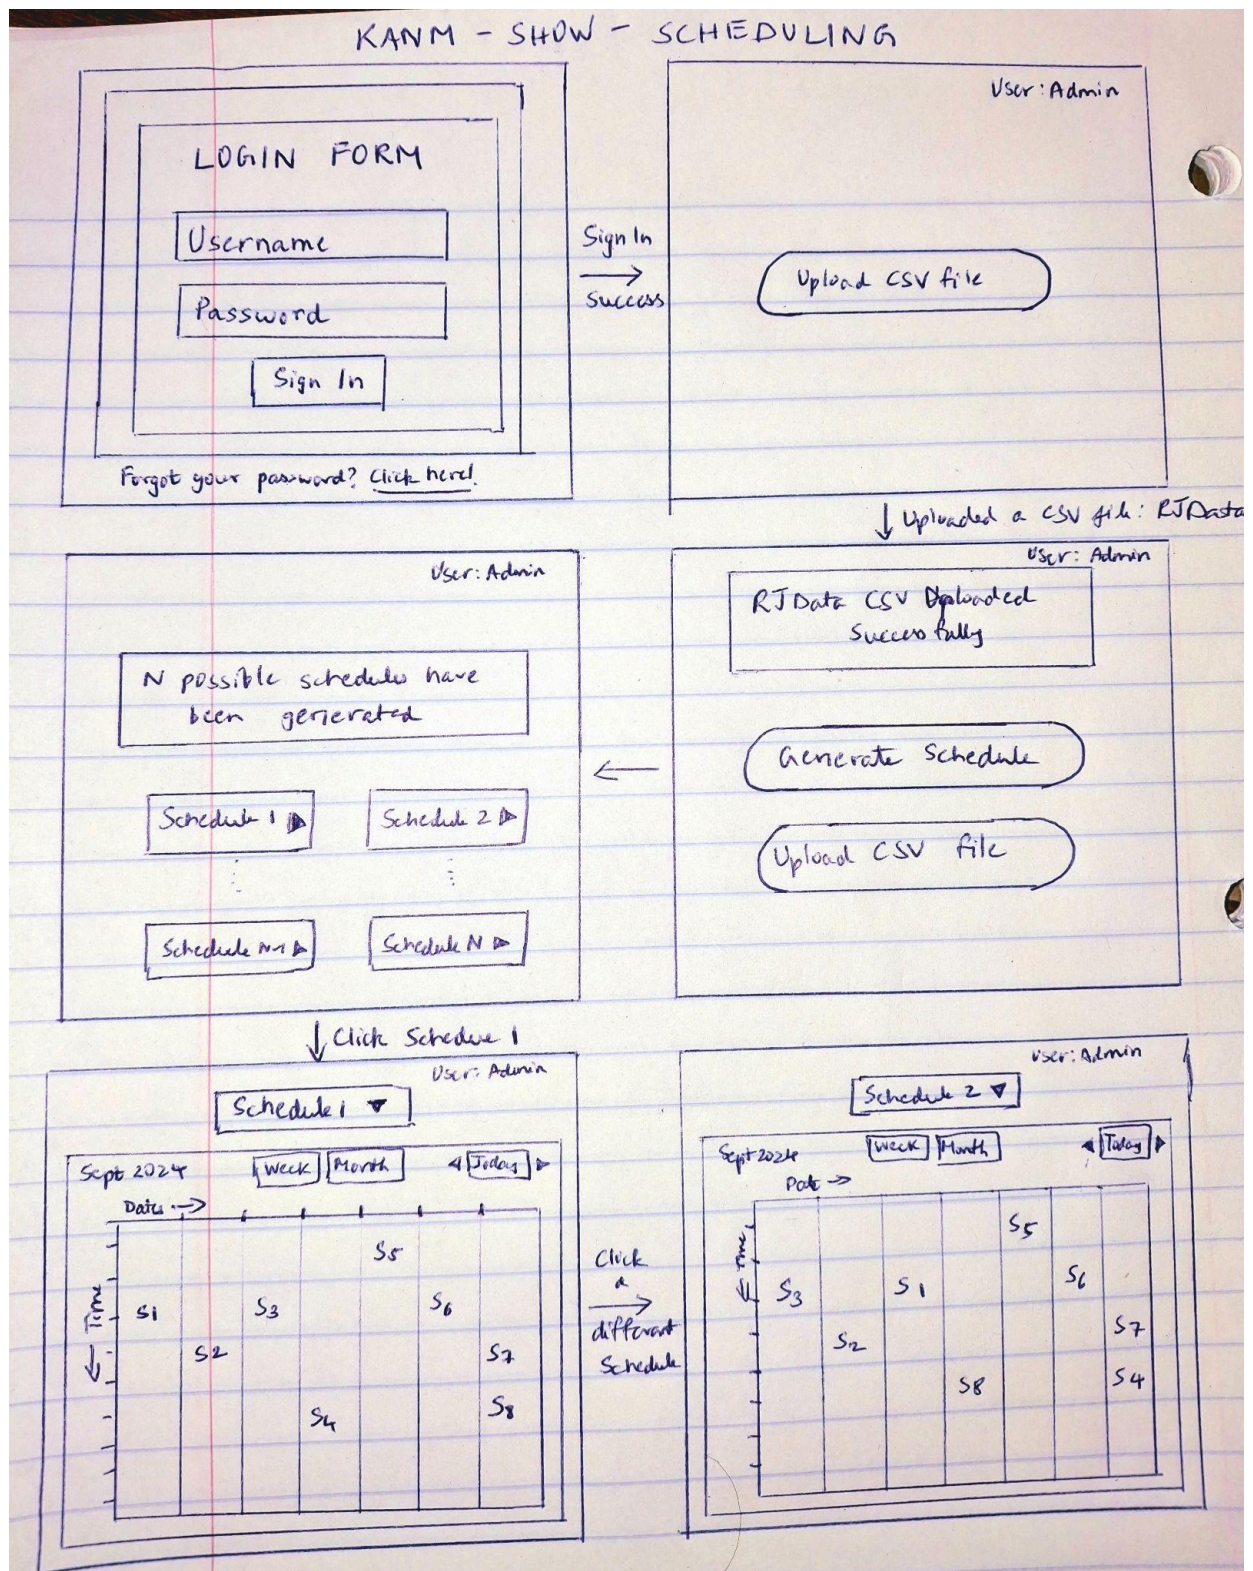 KANM - SHOW - SCHEDULING
LOGIN FORM
Username
Password
Sign In
Forgot your password? Click here!
Sign In
Success
User: Admin
Upload CSV file
Uploaded a CSV file: RJData
User: Admin
RJData CSV Uploaded
Successfully
Generate Schedule
Upload CSV file
User: Admin
N possible schedules have
been generated
Schedule 1
Schedule 2
Schedule N-1
Schedule N
Click Schedule 1
User: Admin
Schedule 1
Sept 2024
Week
Month
Today
Dates
Time
S5
S1
S3
S6
S2
S7
S4
S8
Click
a
different
Schedule
User: Admin
Schedule 2
Sept 2024
Week
Month
Today
Date
Time
S5
S3
S1
S6
S2
S7
S8
S4